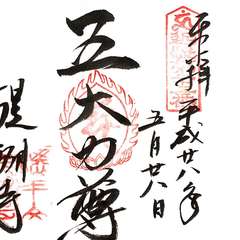 奉拝 平成廿八年
五月廿八日
五大力尊
醍醐寺